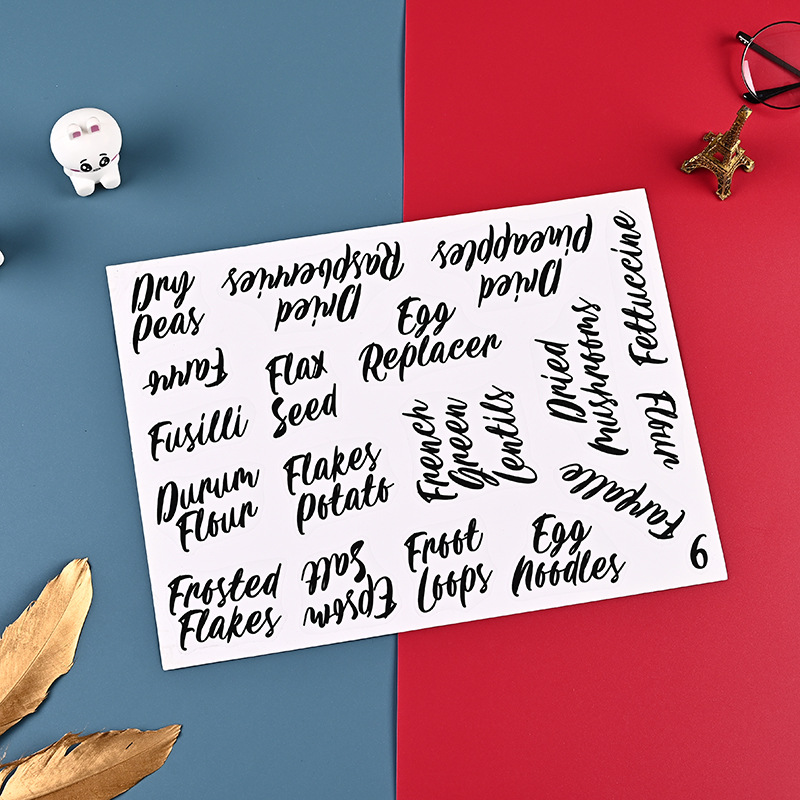 Dry
Peas
Dried
Raspberries
Dried
Pineapples
Fettuccine
Farro
Flax
Seed
Egg
Replacer
Dried
Mushrooms
Flour
Fusilli
French
Green
Lentils
Durum
Flour
Flakes
Potato
Farfalle
Frosted
Flakes
Epsom
Salt
Froot
Loops
Egg
Noodles
6